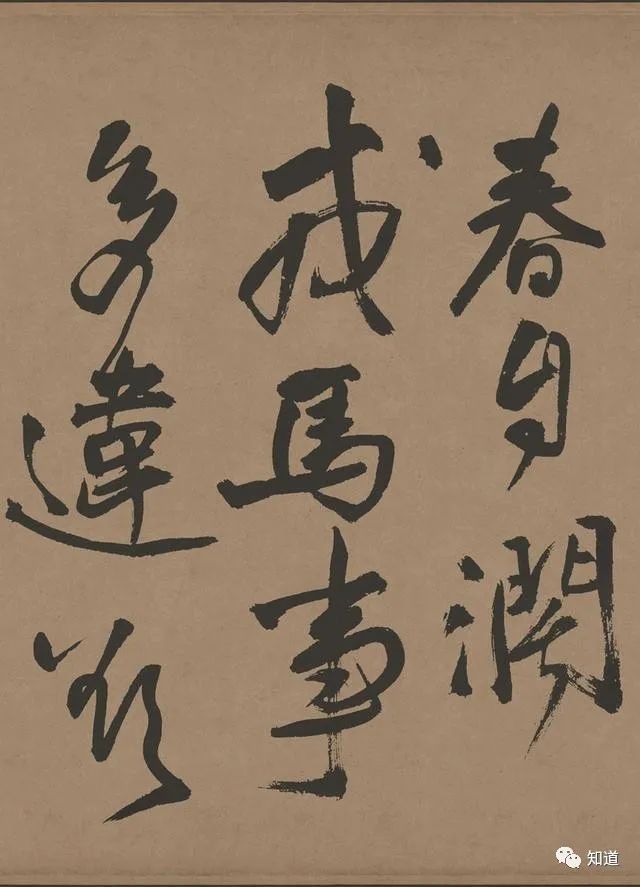 春自潤
戎馬事
多違
知道